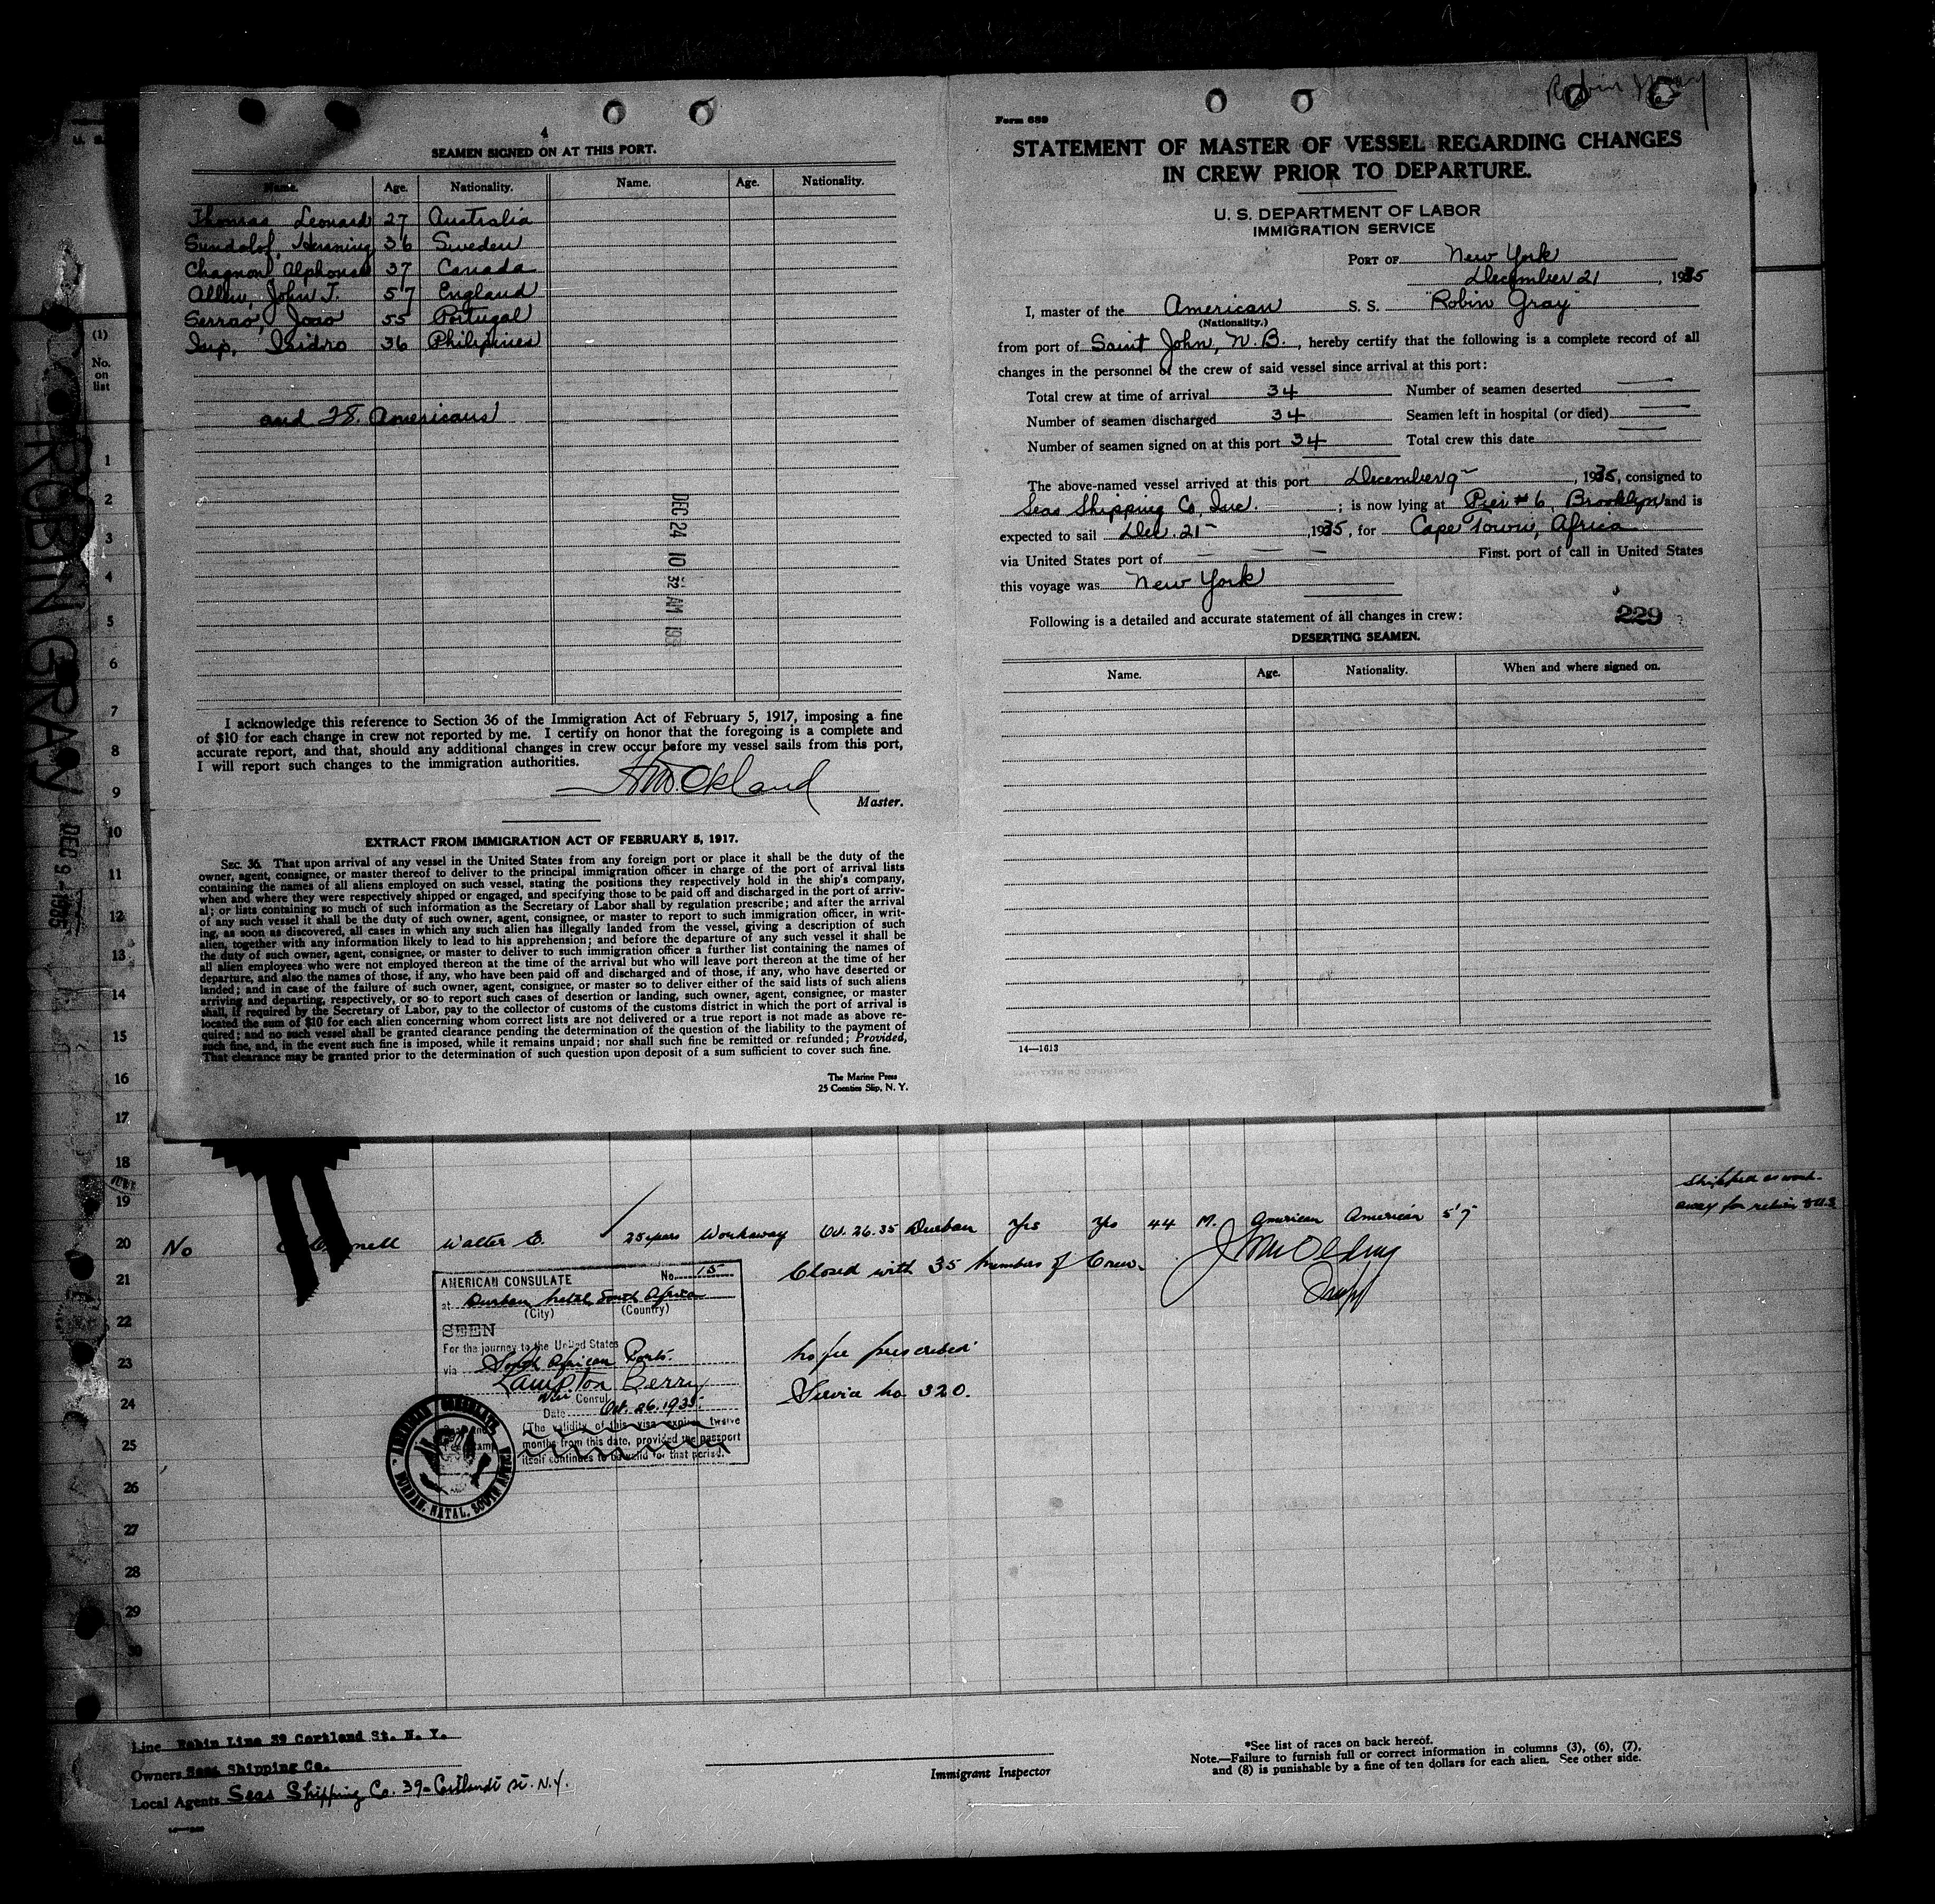 Robin Gray
4
SEAMEN SIGNED ON AT THIS PORT.
Name. Age. Nationality. Name. Age. Nationality.
Thomas, Leonard 27 Australia
Sundelof, Henning 36 Sweden
Chagnon, Alphonse 37 Canada
Allen, John T. 57 England
Serrao, Joao 55 Portugal
Isidro 36 Philipines
and 28 Americans
DEC 24 10 32 AM 193
I acknowledge this reference to Section 36 of the Immigration Act of February 5, 1917, imposing a fine
of $10 for each change in crew not reported by me. I certify on honor that the foregoing is a complete and
accurate report, and that, should any additional changes in crew occur before my vessel sails from this port,
I will report such changes to the immigration authorities.
Master.
EXTRACT FROM IMMIGRATION ACT OF FEBRUARY 5, 1917.
SEC. 36. That upon arrival of any vessel in the United States from any foreign port or place it shall be the duty of the
owner, agent, consignee, or master thereof to deliver to the principal immigration officer in charge of the port of arrival lists
containing the names of all aliens employed on such vessel, stating the positions they respectively hold in the ship's company,
when and where they were respectively shipped or engaged, and specifying those to be paid off and discharged in the port of arriv-
al; or lists containing so much of such information as the Secretary of Labor shall by regulation prescribe; and after the arrival
of any such vessel it shall be the duty of such owner, agent, consignee, or master to report to such immigration officer, in writ-
ing, as soon as discovered, all cases in which any such alien has illegally landed from the vessel, giving a description of such
alien, together with any information likely to lead to his apprehension; and before the departure of any such vessel it shall be
the duty of such owner, agent, consignee, or master to deliver to such immigration officer a further list containing the names of
all alien employees who were not employed thereon at the time of the arrival but who will leave port thereon at the time of her
departure, and also the names of those, if any, who have been paid off and discharged and of those, if any, who have deserted or
landed; and in case of the failure of such owner, agent, consignee, or master so to deliver either of the said lists of such aliens
arriving and departing, respectively, or so to report such cases of desertion or landing, such owner, agent, consignee, or master
shall, if required by the Secretary of Labor, pay to the collector of customs of the customs district in which the port of arrival is
located the sum of $10 for each alien concerning whom correct lists are not delivered or a true report is not made as above re-
quired; and no such vessel shall be granted clearance pending the determination of the question of the liability to the payment of
such fine, and, in the event such fine is imposed, while it remains unpaid; nor shall such fine be remitted or refunded; Provided,
That clearance may be granted prior to the determination of such question upon deposit of a sum sufficient to cover such fine.
The Marine Press
25 Coenties Slip, N. Y.
Form 689
STATEMENT OF MASTER OF VESSEL REGARDING CHANGES
IN CREW PRIOR TO DEPARTURE.
U. S. DEPARTMENT OF LABOR
IMMIGRATION SERVICE
PORT OF New York
December 21, 1935
I, master of the American S. S. "Robin Gray"
(Nationality.)
from port of Saint John, N. B., hereby certify that the following is a complete record of all
changes in the personnel of the crew of said vessel since arrival at this port:
Total crew at time of arrival 34 Number of seamen deserted
Number of seamen discharged 34 Seamen left in hospital (or died)
Number of seamen signed on at this port 34 Total crew this date
The above-named vessel arrived at this port December 9, 1935, consigned to
Seas Shipping Co, Inc. ; is now lying at Pier #6, Brooklyn and is
expected to sail Dec. 21, 1935, for Cape Town, Africa
via United States port of First port of call in United States
this voyage was New York
229
Following is a detailed and accurate statement of all changes in crew:
DESERTING SEAMEN.
Name. Age. Nationality. When and where signed on.
14—1613
ROBIN GRAY
DEC 9 - 1935
(1)
No.
on
list
1
2
3
4
5
6
7
8
9
10
11
12
13
14
15
16
17
18
19
shipped as work-
away for return
20 No Walter E. 25 years Workaway Oct. 26.35 Durban Yes Yes 44 M. American American 5'7
21 Closed with 35 members of Crew.
22
23 No fee prescribed
24 Service no. 320.
25
26
27
28
29
AMERICAN CONSULATE No. 15
at Durban Natal, South Africa
(City) (Country)
SEEN
For the journey to the United States
via South African Ports.
Lampton Berry
Vice Consul
Date Oct. 26. 1935.
(The validity of this visa expires twelve
months from this date, provided the passport
itself continues to be valid for that period.
AMERICAN CONSULATE, DURBAN, NATAL, SOUTH AFRICA
Line Robin Line 39 Cortland St. N. Y.
Owners Seas Shipping Co.
Local Agents Seas Shipping Co. 39-Cortlandt St. N.Y.
Immigrant Inspector
*See list of races on back hereof.
Note.—Failure to furnish full or correct information in columns (3), (6), (7),
and (8) is punishable by a fine of ten dollars for each alien. See other side.